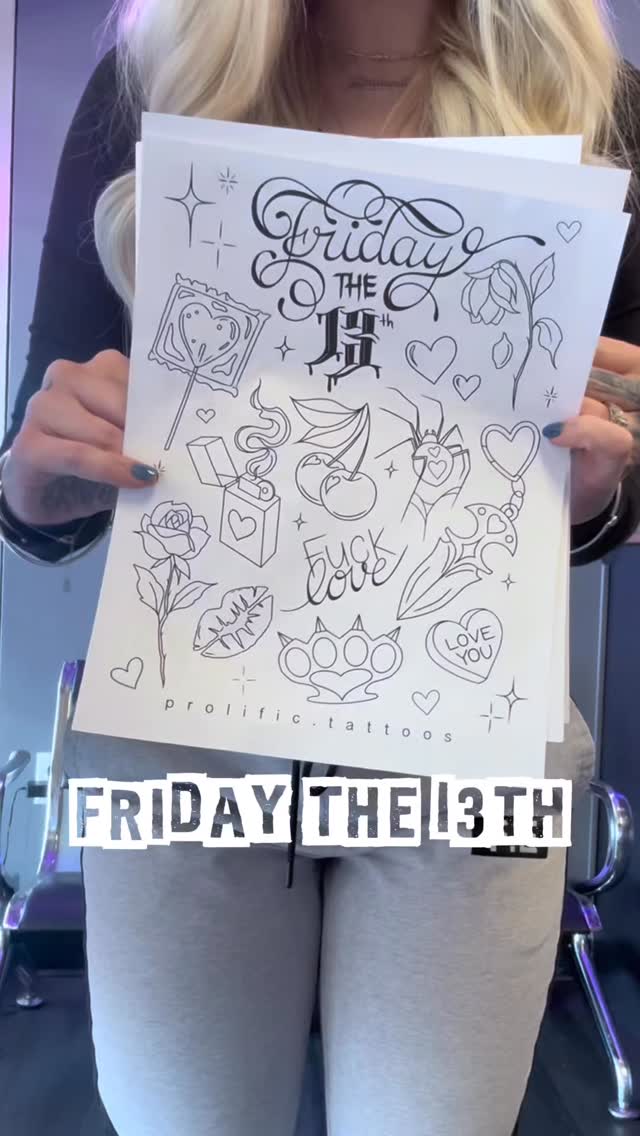 Friday
THE
13th
FUCK
love
LOVE
YOU
prolific.tattoos
FRIDAY THE 13TH